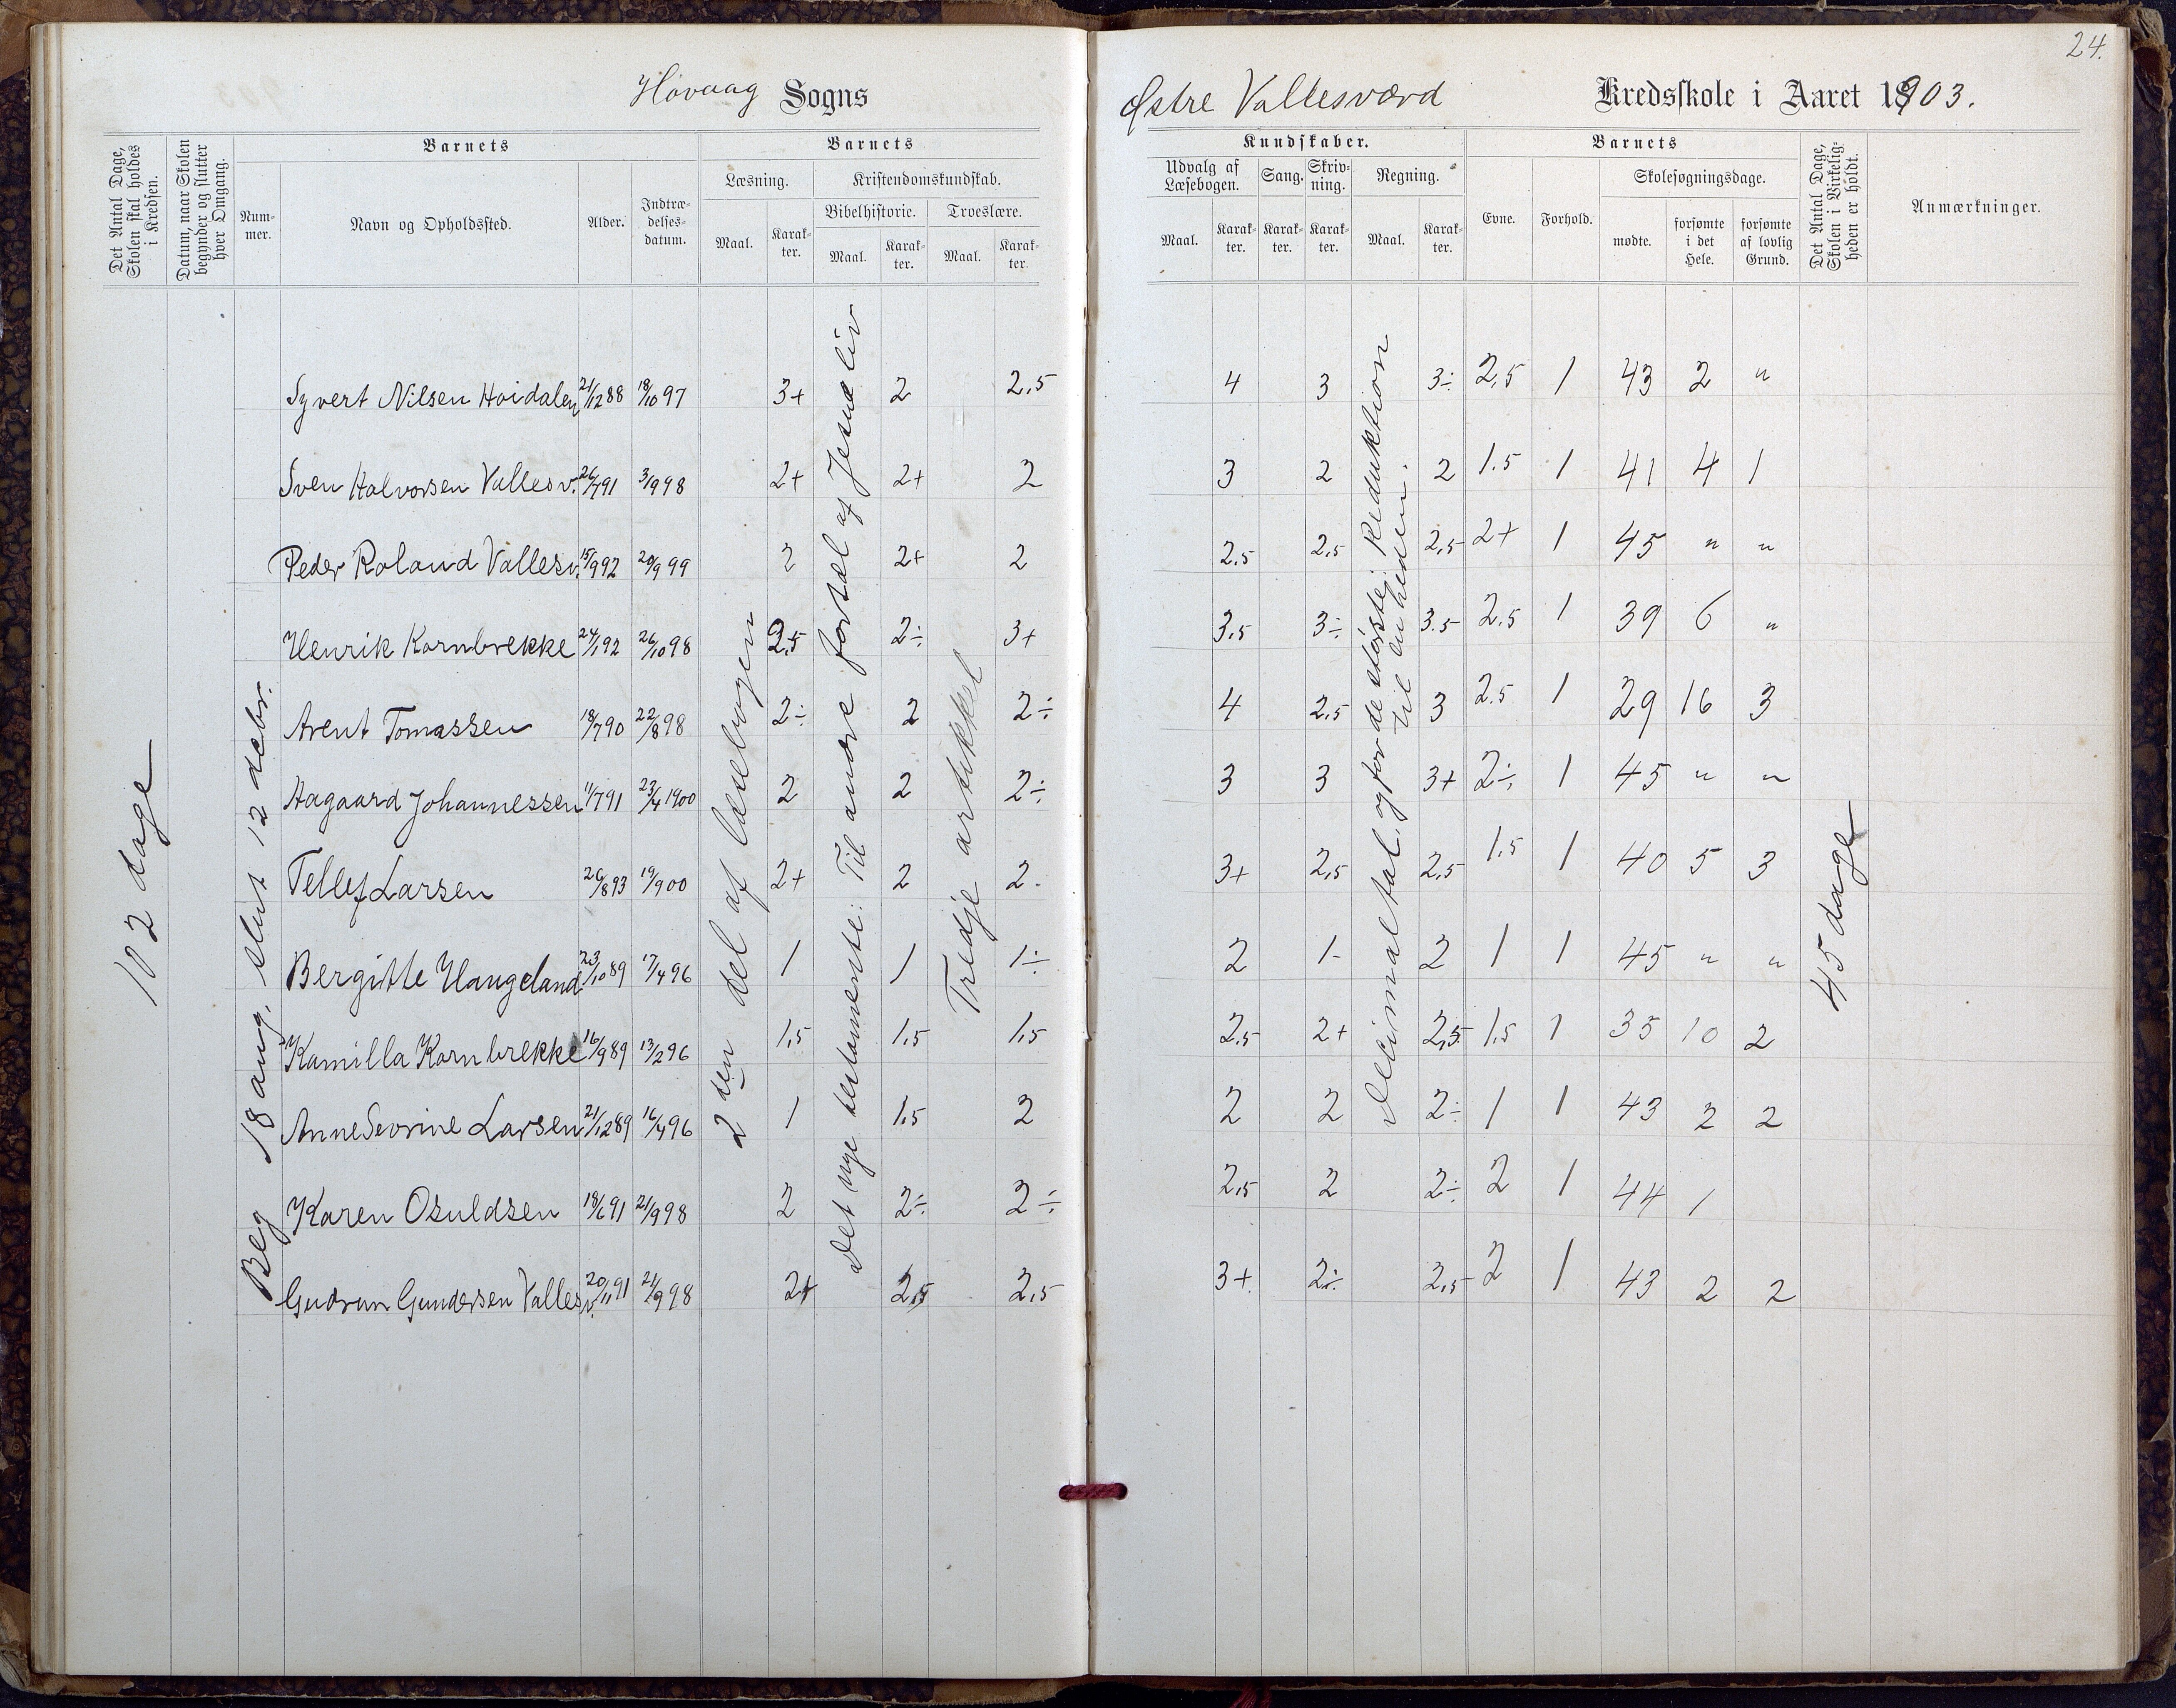 24.
Høvaag Sogns
Østre Vallesværd Kredsskole i Aaret 1903.
Det Antal Dage, Skolen skal holdes i Kredsen.
Datum, naar Skolen begynder og slutter hver Omgang.
Barnets
Nummer.
Navn og Opholdssted.
Alder.
Indtrædelsesdatum.
Barnets
Læsning.
Maal.
Karakter.
Kristendomskundskab.
Bibelhistorie.
Maal.
Karakter.
Troeslære.
Maal.
Karakter.
Kundskaber.
Udvalg af Læsebogen.
Maal.
Karakter.
Sang.
Karakter.
Skrivning.
Karakter.
Regning.
Maal.
Karakter.
Barnets
Evne.
Forhold.
Skolesøgningsdage.
mødte.
forsømte i det Hele.
forsømte af lovlig Grund.
Det Antal Dage, Skolen i Virkeligheden er holdt.
Anmærkninger.
102 dage
Beg 18 aug. slut 12 debr.
2den del af læsebogen
Det nye testamente: Til andre fortæl af Jesu liv
Tredje artikkel
Decimaltal, og for de største: Reduktion til enheden.
45 dage
Syvert Nilsen Hoidalen 21/12 88 18/10 97 3+ 2 2,5 4 3 3÷ 2,5 1 43 2 "
Sven Halvorsen Vallesv. 26/7 91 3/9 98 2+ 2+ 2 3 2 2 1.5 1 41 4 1
Peder Roland Vallesv. 15/9 92 20/9 99 2 2+ 2 2,5 2,5 2,5 2+ 1 45 " "
Henrik Kornbrekke 24/1 92 26/10 98 2,5 2÷ 3+ 3,5 3÷ 3.5 2.5 1 39 6 "
Arent Tomassen 18/7 90 22/8 98 2÷ 2 2÷ 4 2,5 3 2.5 1 29 16 3
Aagaard Johannessen 11/7 91 23/4 1900 2 2 2÷ 3 3 3+ 2÷ 1 45 " "
Tellef Larsen 26/8 93 19/9 00 2+ 2 2. 3+ 2,5 2,5 1.5 1 40 5 3
Bergitte Haugeland 23/10 89 17/4 96 1 1 1÷ 2 1- 2 1 1 45 " "
Kamilla Kornbrekke 16/9 89 13/2 96 1,5 1,5 1,5 2,5 2+ 2,5 1,5 1 35 10 2
Anne Sevrine Larsen 21/12 89 16/4 96 1 1,5 2 2 2 2÷ 1 1 43 2 2
Karen Osuldsen 18/6 91 21/9 98 2 2÷ 2÷ 2,5 2 2÷ 2 1 44 1
Gudrun Gundersen Vallesv. 20/11 91 21/9 98 2+ 2,5 2,5 3+ 2÷ 2,5 2 1 43 2 2